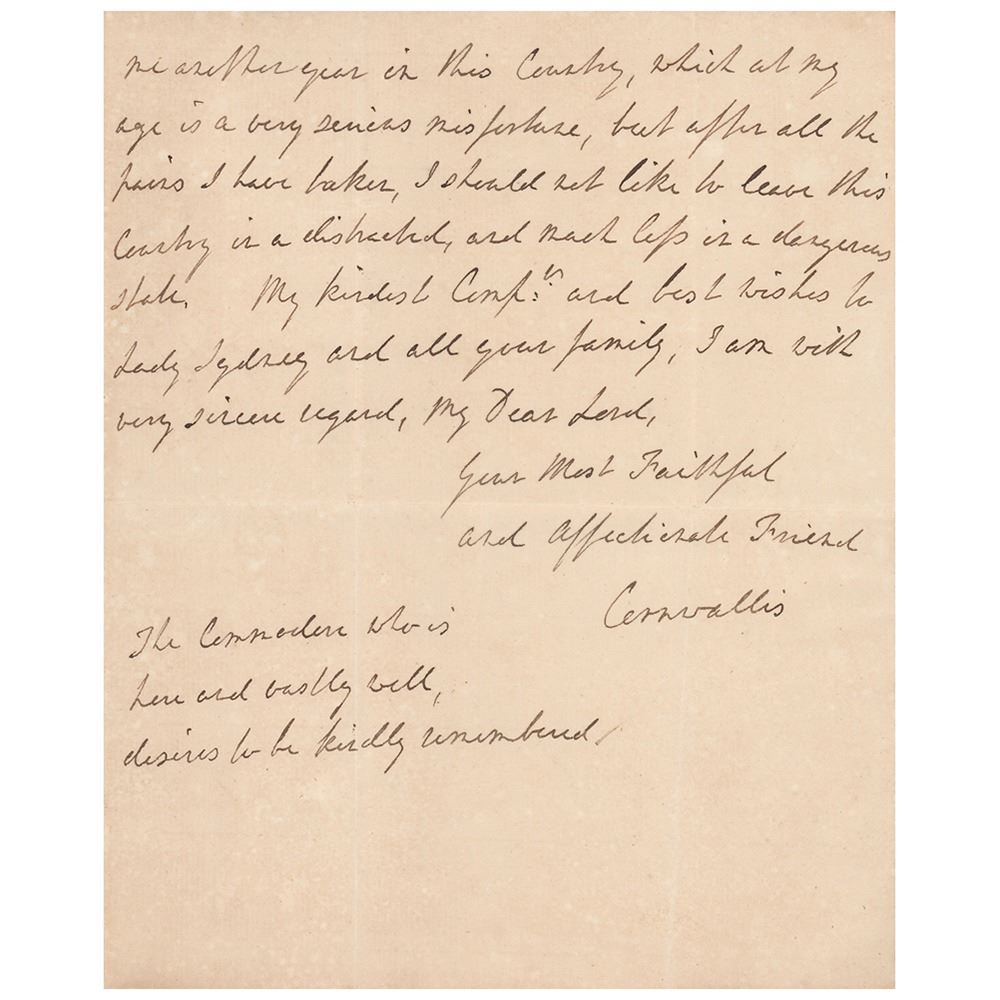 me another year in this Country, which at my
age is a very serious misfortune, but after all the
pains I have taken, I should not like to leave this
Country in a distracted, and much less in a dangerous
state. My kindest Comp.ts and best wishes to
Lady Sydney and all your family, I am with
very sincere regard, My Dear Lord,
Your Most Faithful
and Affectionate Friend
Cornwallis
The Commodore who is
here and vastly well,
desires to be kindly remembered